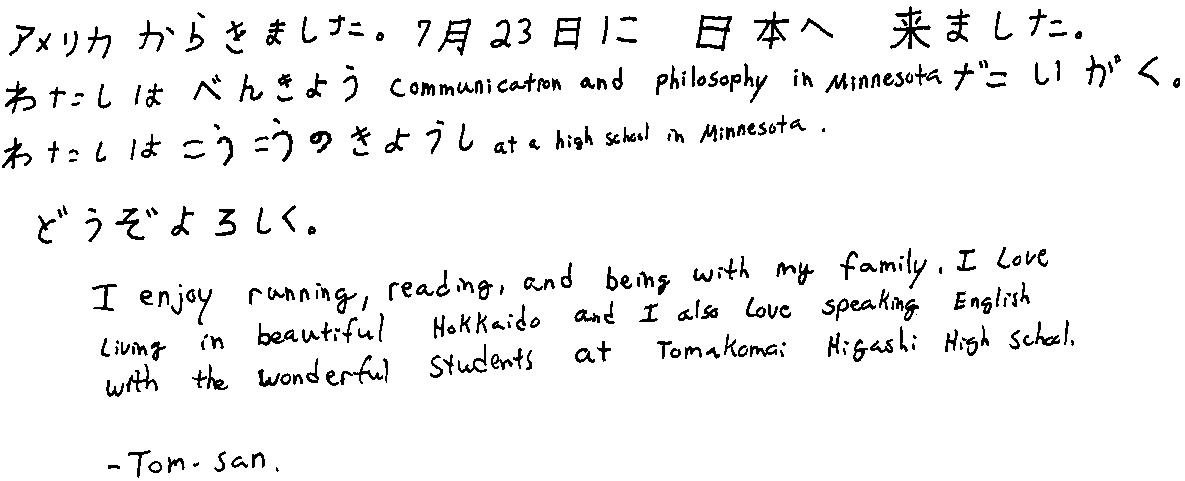 アメリカ からきました。7月23日に 日本へ 来ました。
わたしは べんきよう Communication and philosophy in Minnesota だいがく。
わたしは こうこうのきようし at a high school in Minnesota.
どうぞよろしく。
I enjoy running, reading, and being with my family. I Love
Living in beautiful Hokkaido and I also Love speaking English
with the wonderful students at Tomakomai Higashi High School.
-Tom-san.